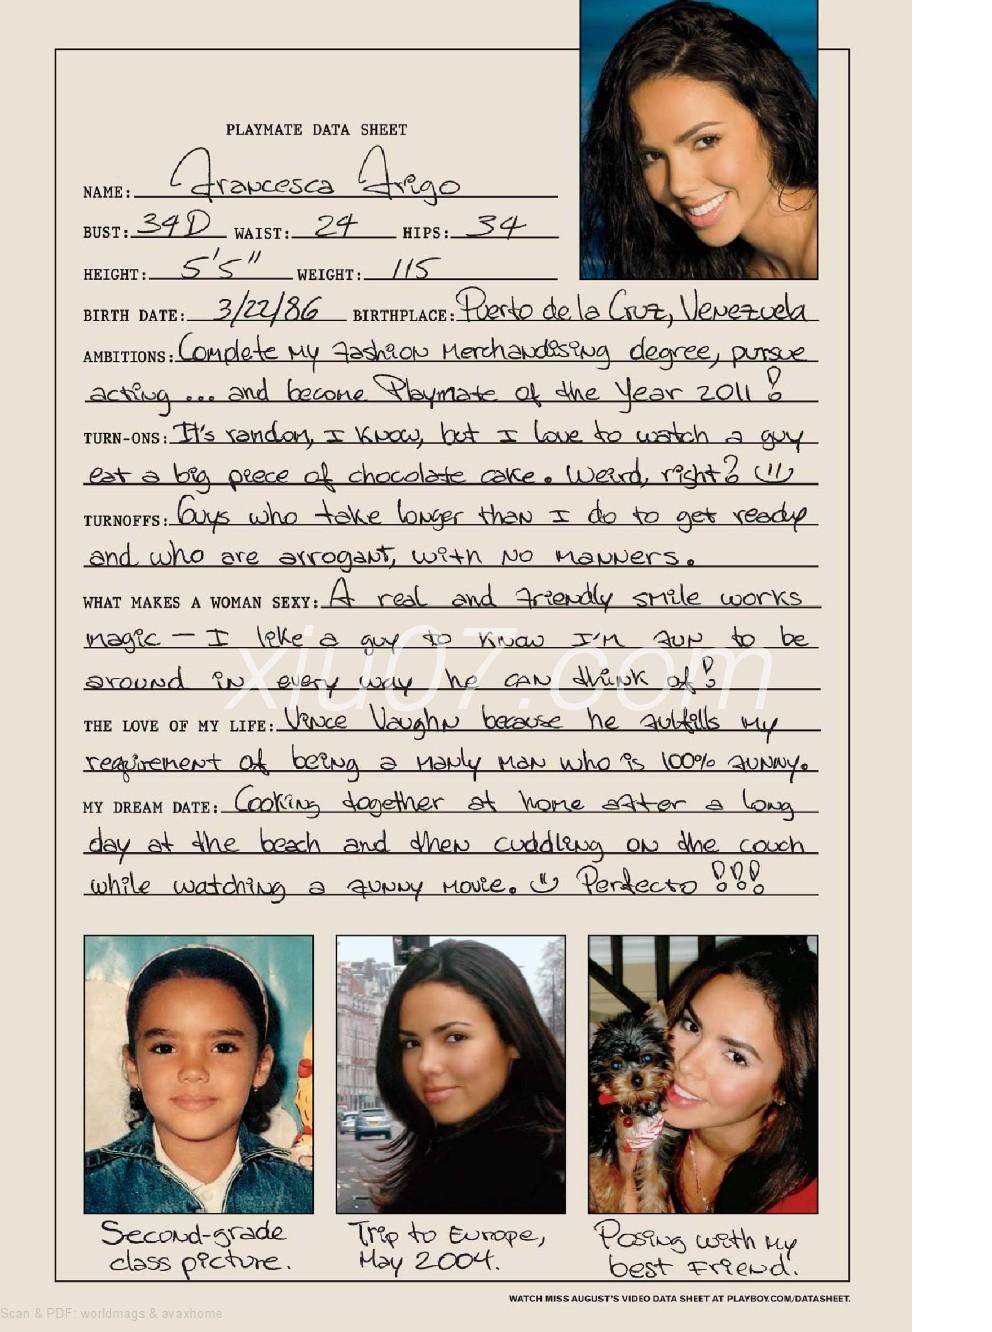 PLAYMATE DATA SHEET
NAME: Francesca Frigo
BUST: 34D WAIST: 24 HIPS: 34
HEIGHT: 5'5" WEIGHT: 115
BIRTH DATE: 3/22/86 BIRTHPLACE: Puerto de la Cruz, Venezuela
AMBITIONS: Complete my fashion merchandising degree, pursue
acting ... and become Playmate of the Year 2011!
TURN-ONS: It's random, I know, but I love to watch a guy
eat a big piece of chocolate cake. Weird, right?
TURNOFFS: Guys who take longer than I do to get ready
and who are arrogant, with no manners.
WHAT MAKES A WOMAN SEXY: A real and friendly smile works
magic — I like a guy to know I'm fun to be
around in every way he can think of!
xiu07.com
THE LOVE OF MY LIFE: Vince Vaughn because he fulfills my
requirement of being a manly man who is 100% funny.
MY DREAM DATE: Cooking together at home after a long
day at the beach and then cuddling on the couch
while watching a funny movie. Perfecto!!!
Second-grade
class picture.
Trip to Europe,
May 2004.
Posing with my
best friend.
WATCH MISS AUGUST'S VIDEO DATA SHEET AT PLAYBOY.COM/DATASHEET.
Scan & PDF: worldmags & avaxhome